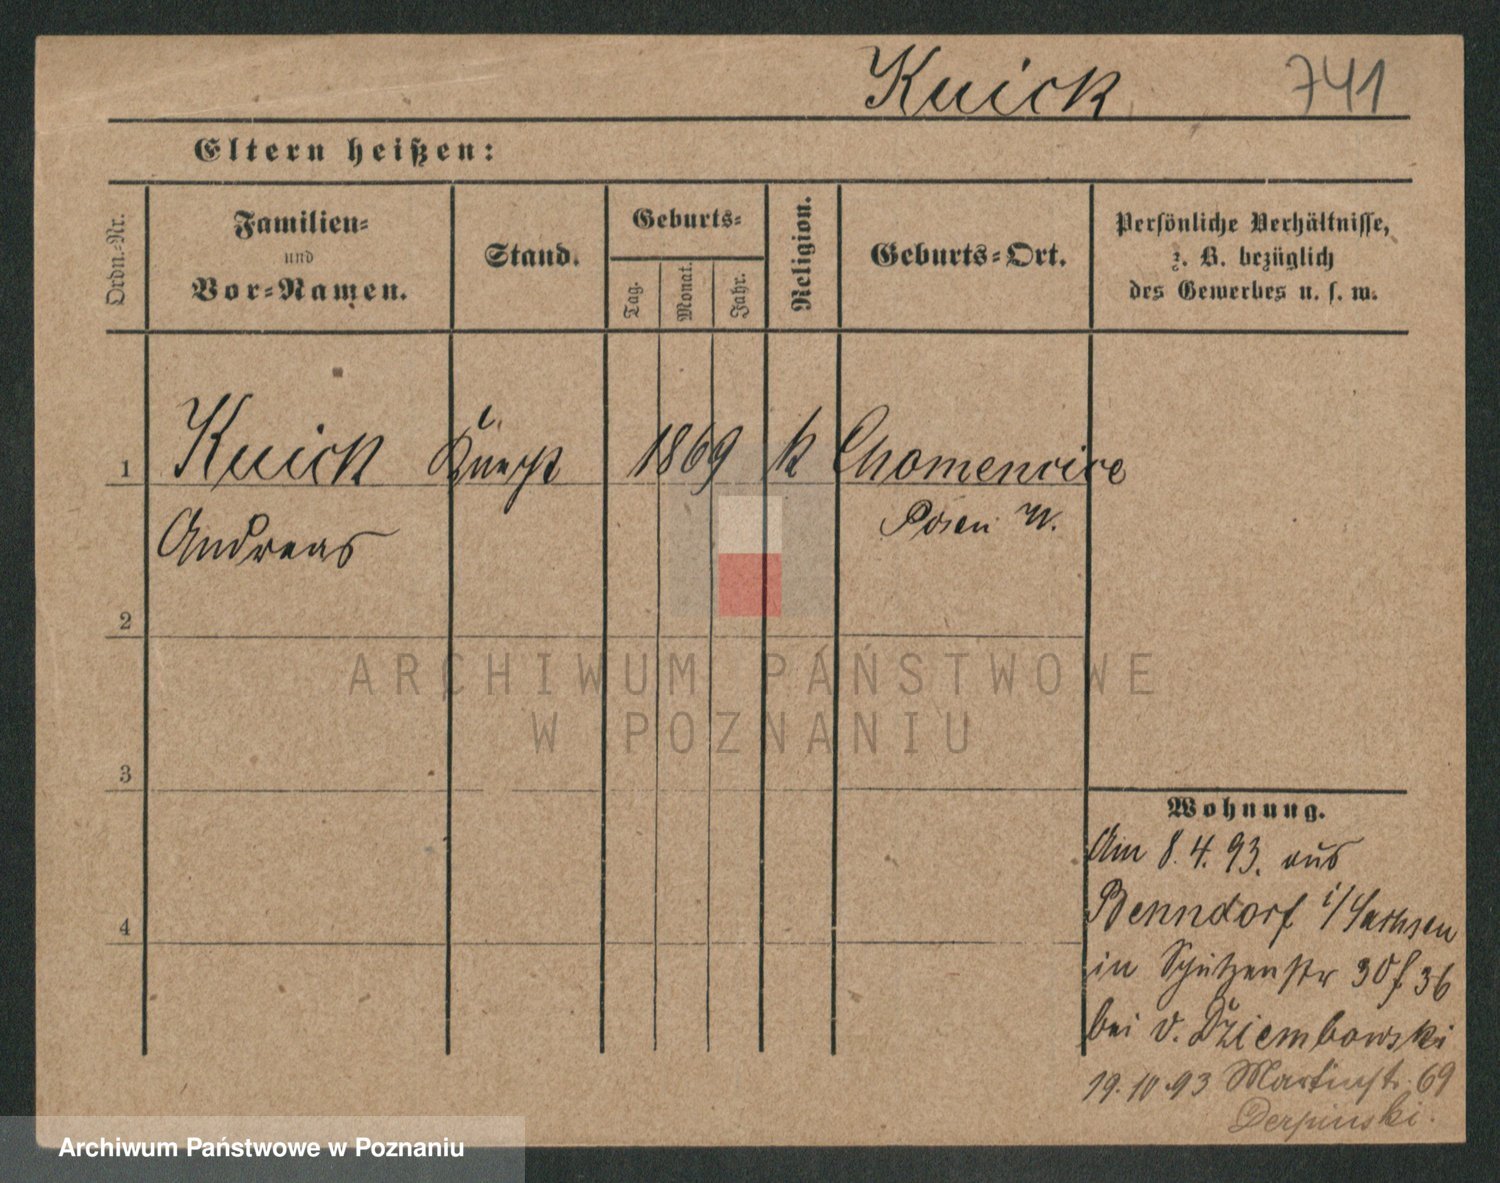 Kuick 741
Eltern heißen:
Ordn.-Nr.
Familien-
und
Vor-Namen.
Stand.
Geburts-
Tag.
Monat.
Jahr.
Religion.
Geburts-Ort.
Persönliche Verhältnisse,
z. B. bezüglich
des Gewerbes u. s. w.
1 Kuick 1869 k Chomencice
Andreas Posen W.
2
ARCHIWUM PAŃSTWOWE
W POZNANIU
3
Wohnung.
Am 8.4.93. aus
4 Benndorf i/Sachsen
in Schützenstr 30/36
bei v. Dziembowski
19.10.93 Martinstr. 69
Derpinski.
Archiwum Państwowe w Poznaniu